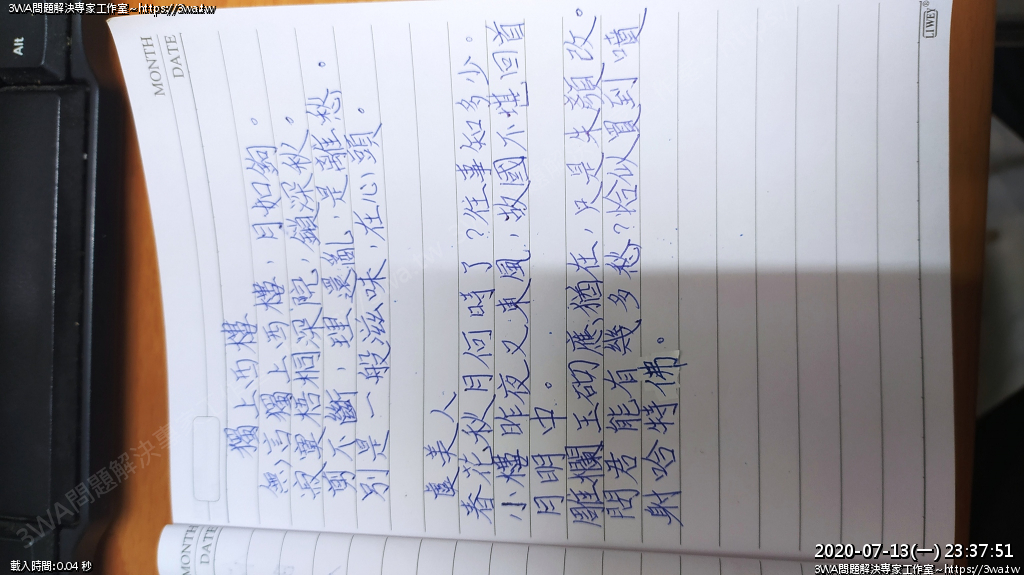 3WA問題解決專家工作室~https://3wa.tw
MONTH
DATE
獨上西樓
無言獨上西樓,月如鉤。
寂寞梧桐深院,鎖深秋。
剪不斷,理還亂,是離愁。
別是一般滋味,在心頭。
虞美人
春花秋月何時了?往事知多少。
小樓昨夜又東風,故國不堪回首
月明中。
雕欄玉砌應猶在,只是朱顏改。
問君能有幾多愁?恰似買到噴
射哈特佛。
MONTH
DATE
Alt
載入時間:0.04 秒
2020-07-13(一) 23:37:51
3WA問題解決專家工作室~https://3wa.tw